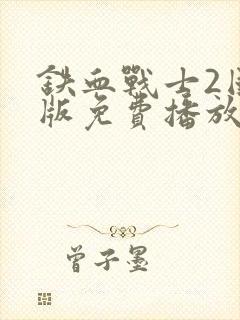 鉄血戰士2
版免費播放
曾子墨